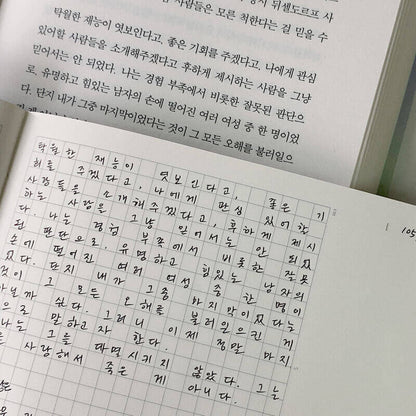 뒤셀도르프 사
사람들은 모른 척한다는 걸 믿을 수
탁월한 재능이 엿보인다고, 좋은 기회를 주겠다고, 나에게 관심
있어할 사람들을 소개해주겠다고 후하게 제시하는 사람을 그냥
믿어서는 안 되었다. 나는 경험 부족에서 비롯한 잘못된 판단으
로, 유명하고 힘있는 남자의 손에 떨어진 여러 여성 중 한 명이었
다. 단지 내가 그중 마지막이었다는 것이 그 모든 오해를 불러일으
탁월한 재능이 엿보인다고, 좋은 기
회를 주겠다고, 나에게 관심 있어할
사람들을 소개해주겠다고, 후하게 제시
하는 사람을 그냥 믿어서는 안 되었
다. 나는 경험 부족에서 비롯한 잘못
된 판단으로, 유명하고 힘있는 남자의
손에 떨어진 여러 여성 중 한 명이
다. 단지 내가 그중 마지막이었다는
것이 그 모든 오해를 불러일으킨 게
아닐까 싶다. 그러니 이제 정말 마지
으로 말하고자 한다.
나는 그를 파멸시키지 않았다. 그는
사랑해서 죽은 게 아니다.
105